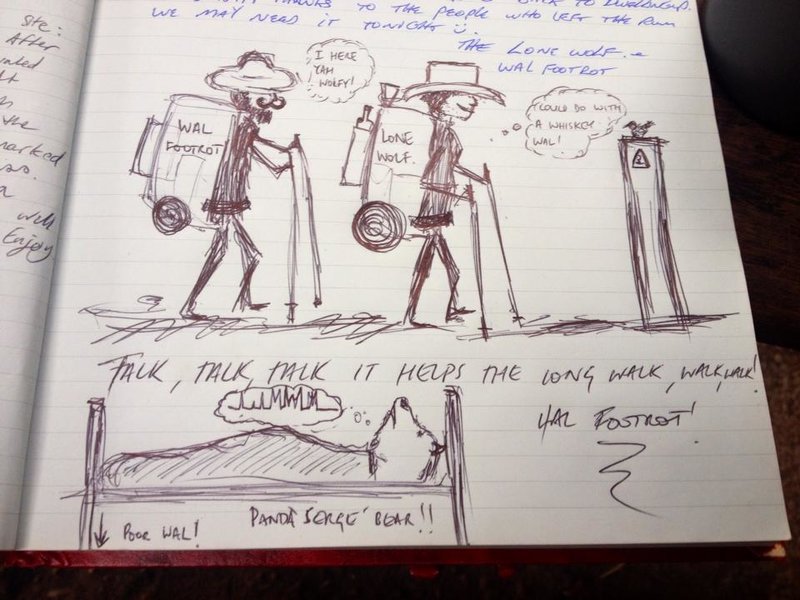 SITE:
AFTER
MARKED
WITH
ENJOY
THANKS TO THE PEOPLE WHO LEFT THE RUM
WE MAY NEED IT TONIGHT
THE LONE WOLF. &
WAL FOOTROT
I HERE
YAH
WOLFY!
WAL
FOOTROT
LONE
WOLF.
COULD DO WITH
A WHISKEY
WAL!
TALK, TALK, TALK IT HELPS THE LONG WALK, WALK, WALK!
WAL FOOTROT!
POOR WAL!
PANDA 'SERGE' BEAR!!